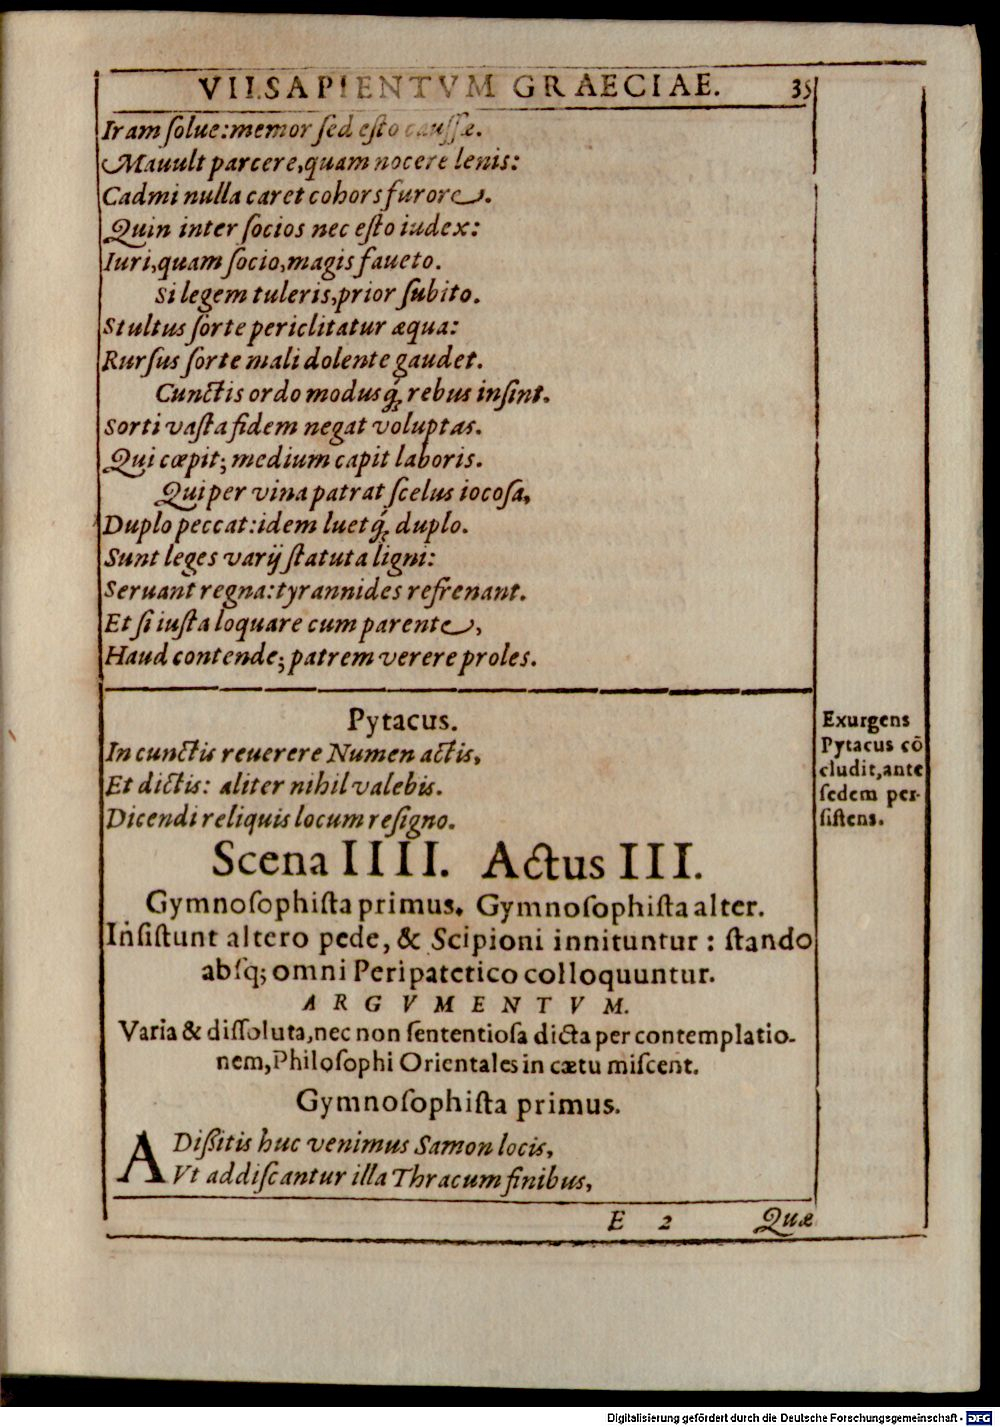 VII.SAPIENTVM GRAECIAE. 35
Iram ſolue: memor ſed eſto cauſſæ.
Mauult parcere, quam nocere lenis:
Cadmi nulla caret cohors furore.
Quin inter ſocios nec eſto iudex:
Iuri, quam ſocio, magis faueto.
Si legem tuleris, prior ſubito.
Stultus ſorte periclitatur æqua:
Rurſus ſorte mali dolente gaudet.
Cunctis ordo modusq́; rebus inſint.
Sorti vaſta fidem negat voluptas.
Qui cœpit; medium capit laboris.
Qui per vina patrat ſcelus iocoſa,
Duplo peccat: idem luetq́; duplo.
Sunt leges varij ſtatuta ligni:
Seruant regna: tyrannides refrenant.
Et ſi iuſta loquare cum parente,
Haud contende; patrem verere proles.
Pytacus.
In cunctis reuerere Numen actis,
Et dictis: aliter nihil valebis.
Dicendi reliquis locum reſigno.
Exurgens
Pytacus cō
cludit, ante
ſedem per-
ſiſtens.
Scena IIII. Actus III.
Gymnoſophiſta primus. Gymnoſophiſta alter.
Inſiſtunt altero pede, & Scipioni innituntur: ſtando
abſq; omni Peripatetico colloquuntur.
ARGVMENTVM.
Varia & diſſoluta, nec non ſententioſa dicta per contemplatio-
nem, Philoſophi Orientales in cætu miſcent.
Gymnoſophiſta primus.
A Dißitis huc venimus Samon locis,
Vt addiſcantur illa Thracum finibus,
E 2 Quæ
Digitalisierung gefördert durch die Deutsche Forschungsgemeinschaft - DFG